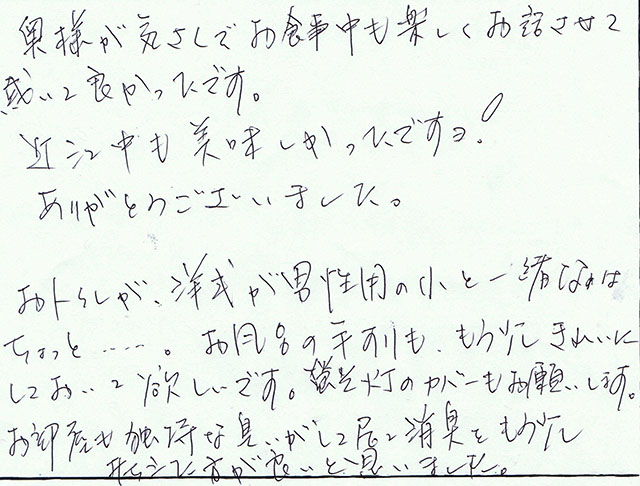 奥様が気さくでお食事中も楽しくお話させて
戴いて良かったです。
近江牛も美味しかったですヨ!
ありがとうございました。
おトイレが、洋式が男性用の小と一緒なのは
ちょっと……。お風呂の手すりも、もう少しきれいに
しておいて欲しいです。蛍光灯のカバーもお願いします。
お部屋も独特な臭いがして居て消臭をもう少し
された方が良いと思いました。